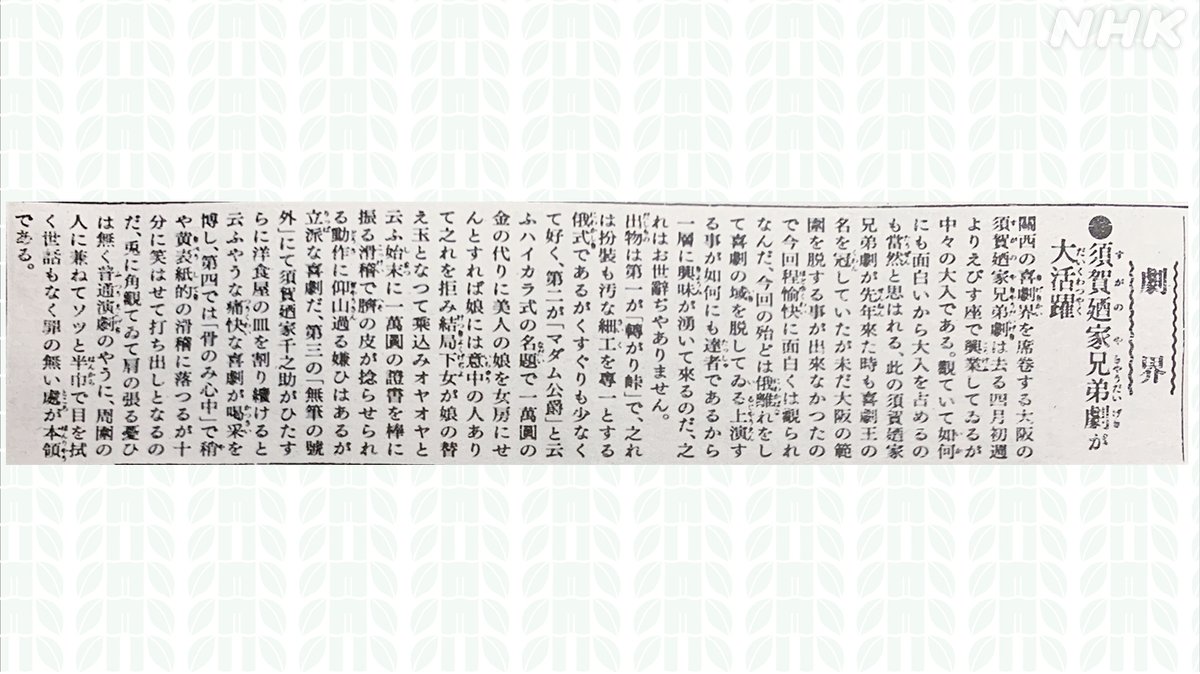 NHK
劇界
●須賀廼家兄弟劇が
大活躍
關西の喜劇界を席卷する大阪の
須賀廼家兄弟劇は去る四月初週
よりえびす座で興業してゐるが
中々の大入である。觀ていて如何
にも面白いから大入を占めるの
も當然と思はれる、此の須賀廼家
兄弟劇が先年來た時も喜劇王の
名を冠していたが未だ大阪の範
圍を脱する事が出來なかつたの
で今回程愉快に面白くは觀られ
なんだ、今回の殆どは俄離れをし
て喜劇の域を脱してゐる上演す
る事が如何にも達者であるから
一層に興味が湧いて來るのだ、之
れはお世辭ぢやありません。
出物は第一が「轉がり峠」で、之れ
は扮裝も汚な細工を專一とする
俄式であるがくすぐりも少なく
て好く、第二が「マダム公爵」と云
ふハイカラ式の名題で一萬圓の
金の代りに美人の娘を女房にせ
んとすれば娘には意中の人あり
て之れを拒み結局下女が娘の替
え玉となつて乘込みオヤオヤと
云ふ始末に一萬圓の證書を棒に
振る滑稽で臍の皮が捻らせられ
る動作に仰山過る嫌ひはあるが
立派な喜劇だ、第三の「無筆の號
外」にて須賀廼家千之助がひたす
らに洋食屋の皿を割り續けると
云ふやうな痛快な喜劇が喝采を
博し、第四では「骨のみ心中」で稍
や黄表紙的の滑稽に落つるが十
分に笑はせて打ち出しとなるの
だ、兎に角觀ゐて肩の張る憂ひ
は無く普通演劇のやうに、周圍の
人に兼ねてソツと半巾で目を拭
く世話もなく罪の無い處が本領
である。